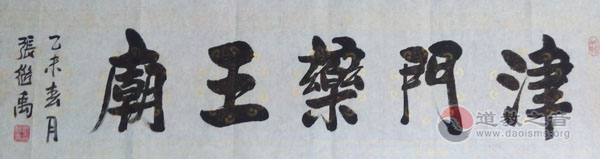 津門藥王廟
乙未春月
張繼禹
道教之音
www.daoisms.org